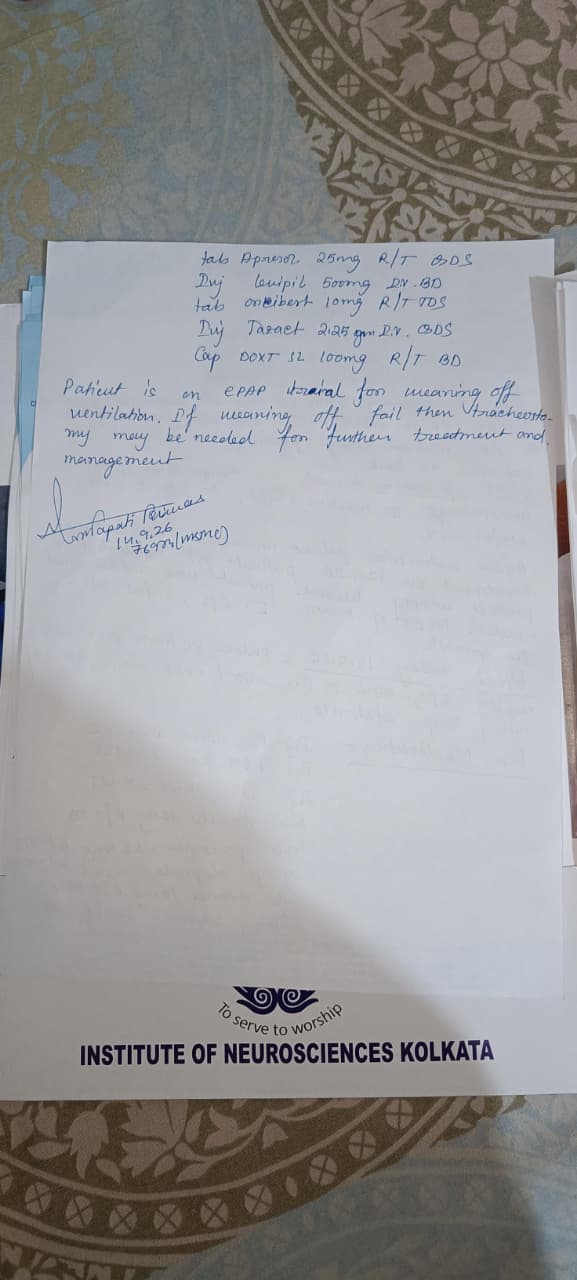 tab Apresol 25mg R/T BDS
Inj Levipil 500mg I.V. BD
tab 10mg R/T TDS
Inj Tazact 2.25 gm I.V.
Cap DOXT SL 100mg R/T BD
Patient is on CPAP for weaning off
ventilation. If weaning off fail then tracheosto-
my may be needed for further treatment and
management
14.9.26
To serve to worship
INSTITUTE OF NEUROSCIENCES KOLKATA